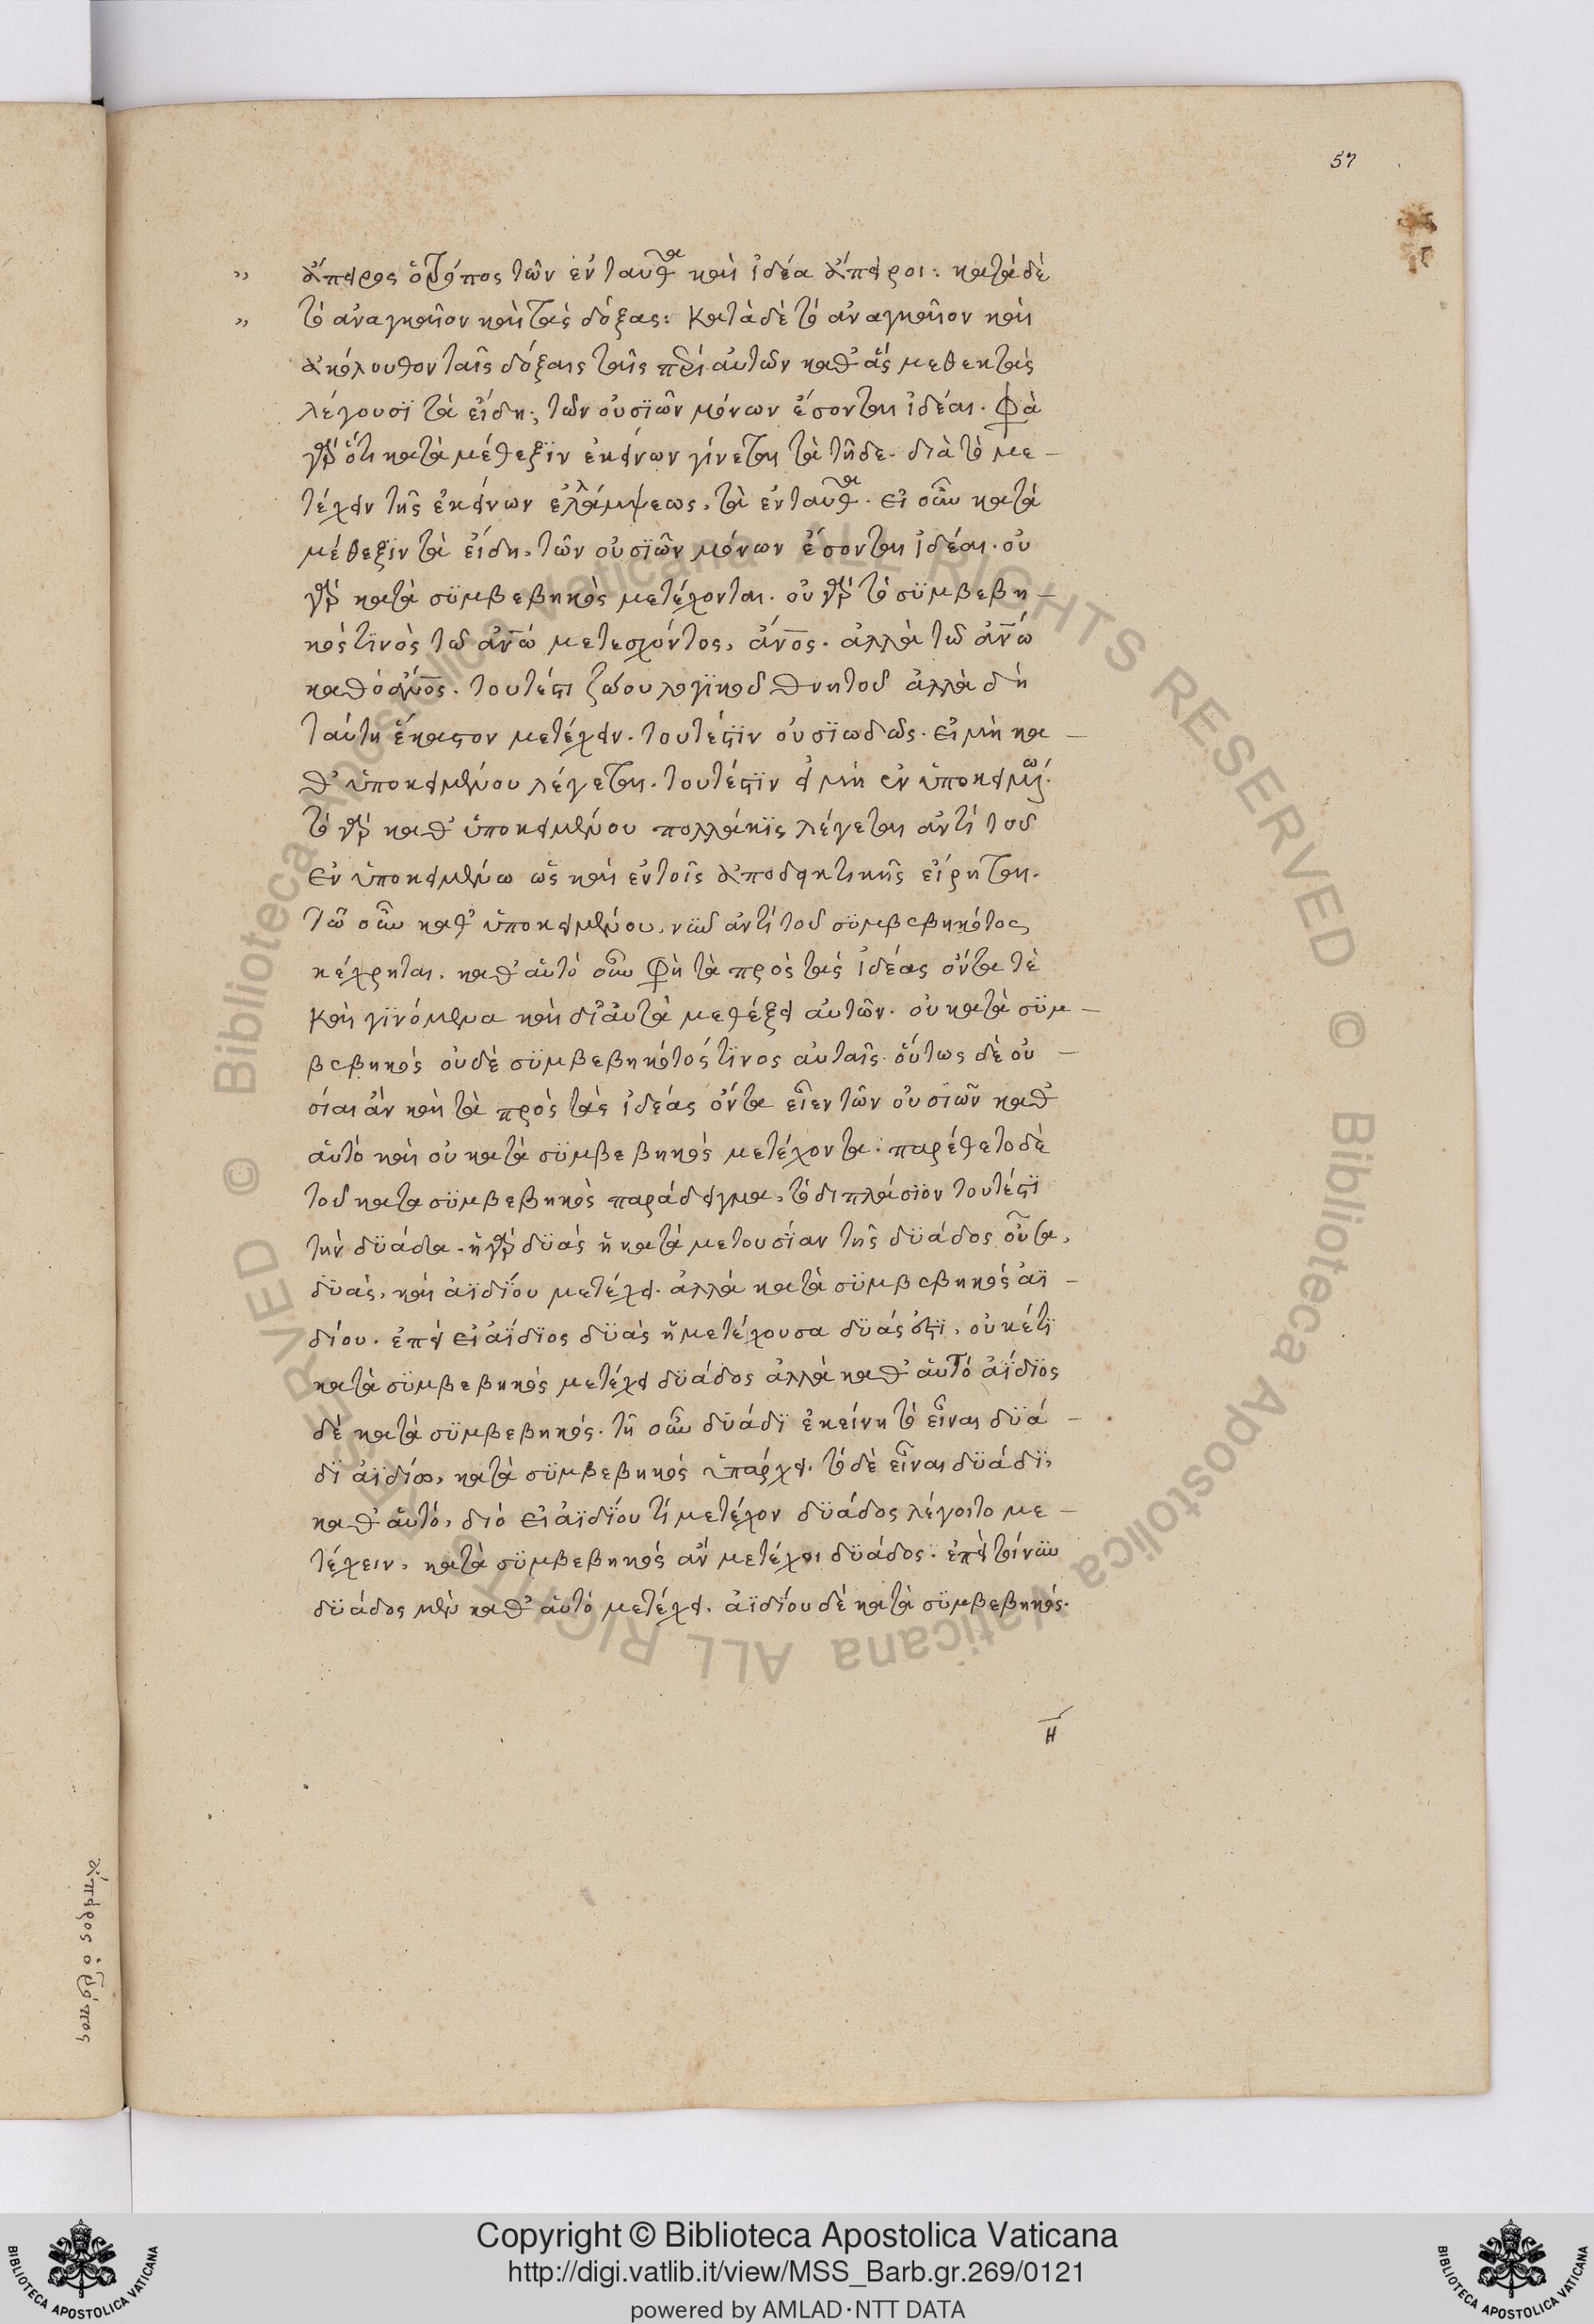 57
„ ἄπειρος ὁ τρόπος τῶν ἐνταῦθα καὶ ἰδέα ἄπειροι: κατὰ δὲ
„ τὸ ἀναγκαῖον καὶ τὰς δόξας: Κατὰ δὲ τὸ ἀναγκαῖον καὶ
ἀκόλουθον ταῖς δόξαις ταῖς περὶ αὐτῶν καθ' ἃς μεθεκτὰς
λέγουσϊ τὰ εἴδη·, τῶν οὐσϊῶν μόνων ἔσονται ἰδέαι. φὰ
γὰρ ὅτι κατὰ μέθεξϊν ἐκείνων γίνεται τὰ τῆδε. διὰ τὸ με –
τέχειν τῆς ἐκείνων ἐλλάμψεως, τὰ ἐνταῦθα. εἰ οὖν κατὰ
μέθεξϊν τὰ εἴδη, τῶν οὐσϊῶν μόνων ἔσονται ἰδέαι. οὐ
γὰρ κατὰ σϋμβεβηκὸς μετέχονται. οὐ γὰρ τὸ σϋμβεβη –
κός τϊνὸς τῶ ἀνω μετεσχόντος, ἄνος. ἀλλὰ τῶ ἀνω
καθὸ ἄνος. τουτέστι ζώου λογϊκοῦ θνητοῦ ἀλλὰ δὴ
ταύτη ἕκαστον μετέχειν. τουτέστϊν οὐσϊωδῶς. εἰ μὴ κα –
θ' ὑποκειμένου λέγεται. τουτέστϊν εἰ μὴ ἐν ὑποκειμένω.
τὸ γὰρ καθ' ὑποκειμένου πολλάκϊς λέγεται ἀντὶ τοῦ
ἐν ὑποκειμένω ὡς καὶ ἐν τοῖς ἀποδεικτικῆς εἴρηται.
τῶ οὖν καθ' ὑποκειμένου, νῦν ἀντὶ τοῦ σϋμβεβηκότος
κέχρηται. καθ' αὑτὸ οὖν φὴ τὰ πρὸς τὰς ἰδέας ὄντα τὲ
καὶ γϊνόμενα καὶ δι' αὐτὰ μεθέξει αὐτῶν. οὐ κατὰ σϋμ –
βεβηκός οὐδὲ σϋμβεβηκότός τϊνος αὐταῖς. οὕτως δὲ οὐ –
σίαι ἂν καὶ τὰ πρὸς τὰς ἰδέας ὄντα εἶεν τῶν οὐσιῶν καθ'
αὑτὸ καὶ οὐ κατὰ σϋμβεβηκὸς μετέχοντα. παρέθετο δὲ
τοῦ κατα σϋμβεβηκὸς παράδειγμα, τὸ διπλάσϊον τουτέστϊ
τὴν δϋάδα. ἡ γὰρ δϋὰς ἡ κατὰ μετουσίαν τῆς δϋάδος οὖσα,
δϋὰς, καὶ ἀϊδΐου μετέχει. ἀλλὰ κατὰ σϋμβεβηκὸς ἀϊ –
δίου. ἐπεὶ εἰ ἀΐδϊος δϋὰς ἡ μετέχουσα δϋάς ἐστϊ, οὐκέτϊ
κατὰ σϋμβεβηκὸς μετέχει δϋάδος ἀλλὰ καθ' αὑτὸ ἀΐδϊος
δὲ κατὰ σϋμβεβηκός. τῆ οὖν δϋάδϊ ἐκείνη τὸ εἶναι δϋά –
δϊ ἀϊδίω, κατὰ σϋμβεβηκὸς ὑπάρχει. τὸ δὲ εἶναι δϋάδϊ,
καθ' αὑτό, διὸ εἰ ἀϊδΐου τί μετέχον δϋάδος λέγοιτο με –
τέχειν, κατὰ σϋμβεβηκὸς ἂν μετέχοι δϋάδος. ἐπεὶ
δϋάδος μὲν καθ' αὑτό μετέχει. ἀϊδίου δὲ κατὰ σϋμβεβηκός.
η
ἄπειρος ὁ τρόπος
Copyright © Biblioteca Apostolica Vaticana
http://digi.vatlib.it/view/MSS_Barb.gr.269/0121
powered by AMLAD·NTT DATA
BIBLIOTECA APOSTOLICA VATICANA
BIBLIOTECA APOSTOLICA VATICANA
© Biblioteca Apostolica Vaticana ALL RIGHTS RESERVED © Biblioteca Apostolica Vaticana ALL RIGHTS RESERVED